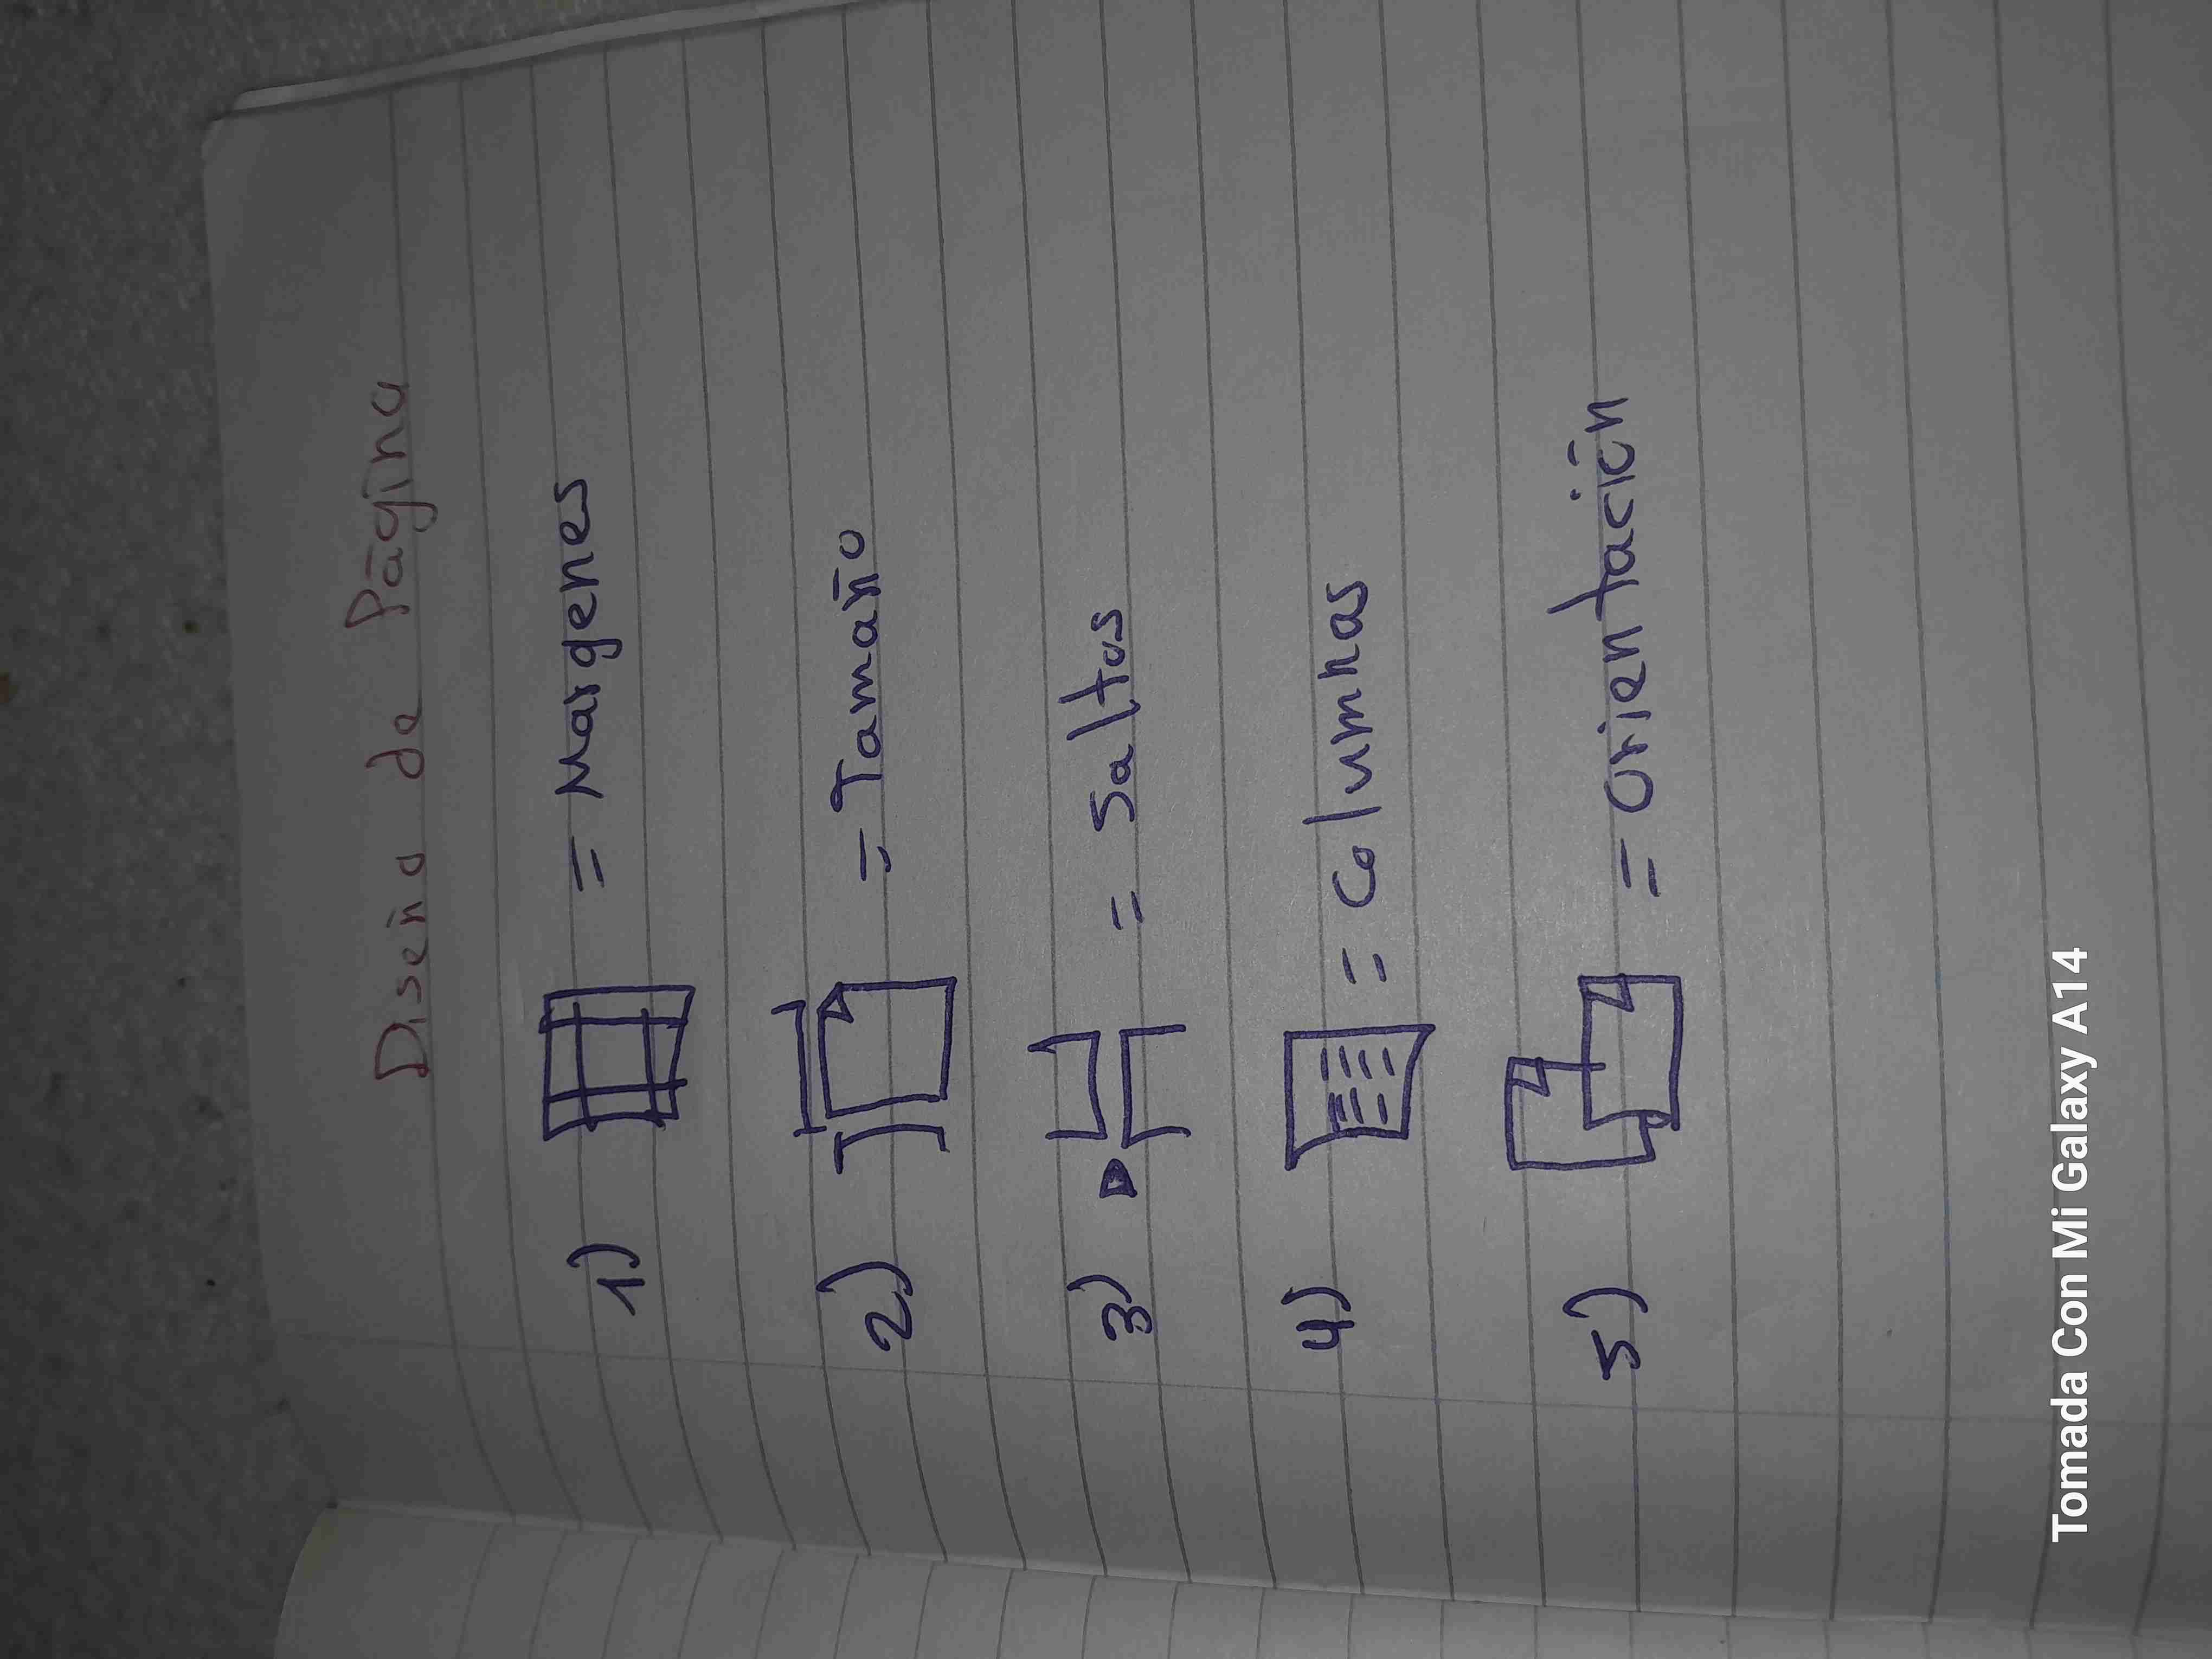 Diseño de Página
1) = Margenes
2) = Tamaño
3) = Saltos
4) = Columnas
5) = Orientación
Tomada Con Mi Galaxy A14